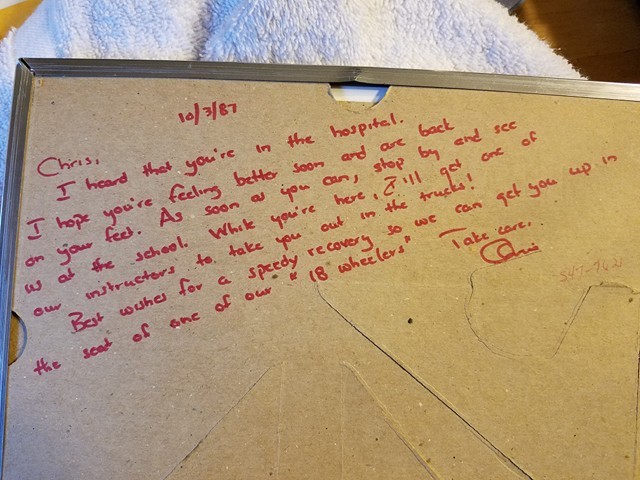 10/3/87
Chris,
I heard that you're in the hospital.
I hope you're feeling better soon and are back
on your feet. As soon as you can, stop by and see
us at the school. While you're here, I'll get one of
our instructors to take you out in the trucks!
Best wishes for a speedy recovery so we can get you up in
the seat of one of our "18 wheelers" Take care,
Chris